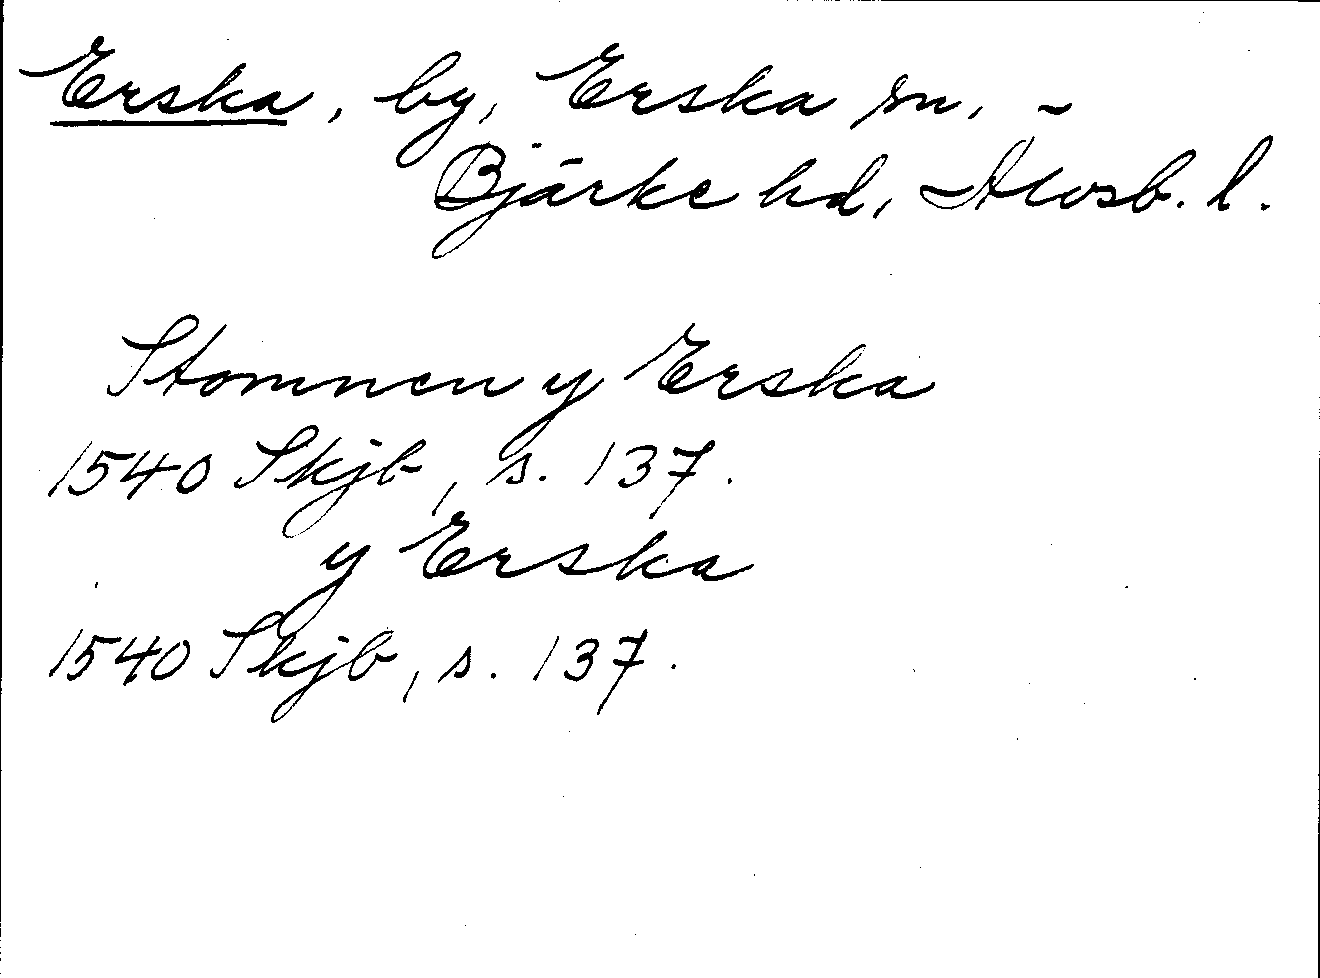 Erska, by, Erska sn, -
Bjärke hd, Älvsb. l.
Stomnen y Erska
1540 Skjb, s. 137.
y Erska
1540 Skjb, s. 137.